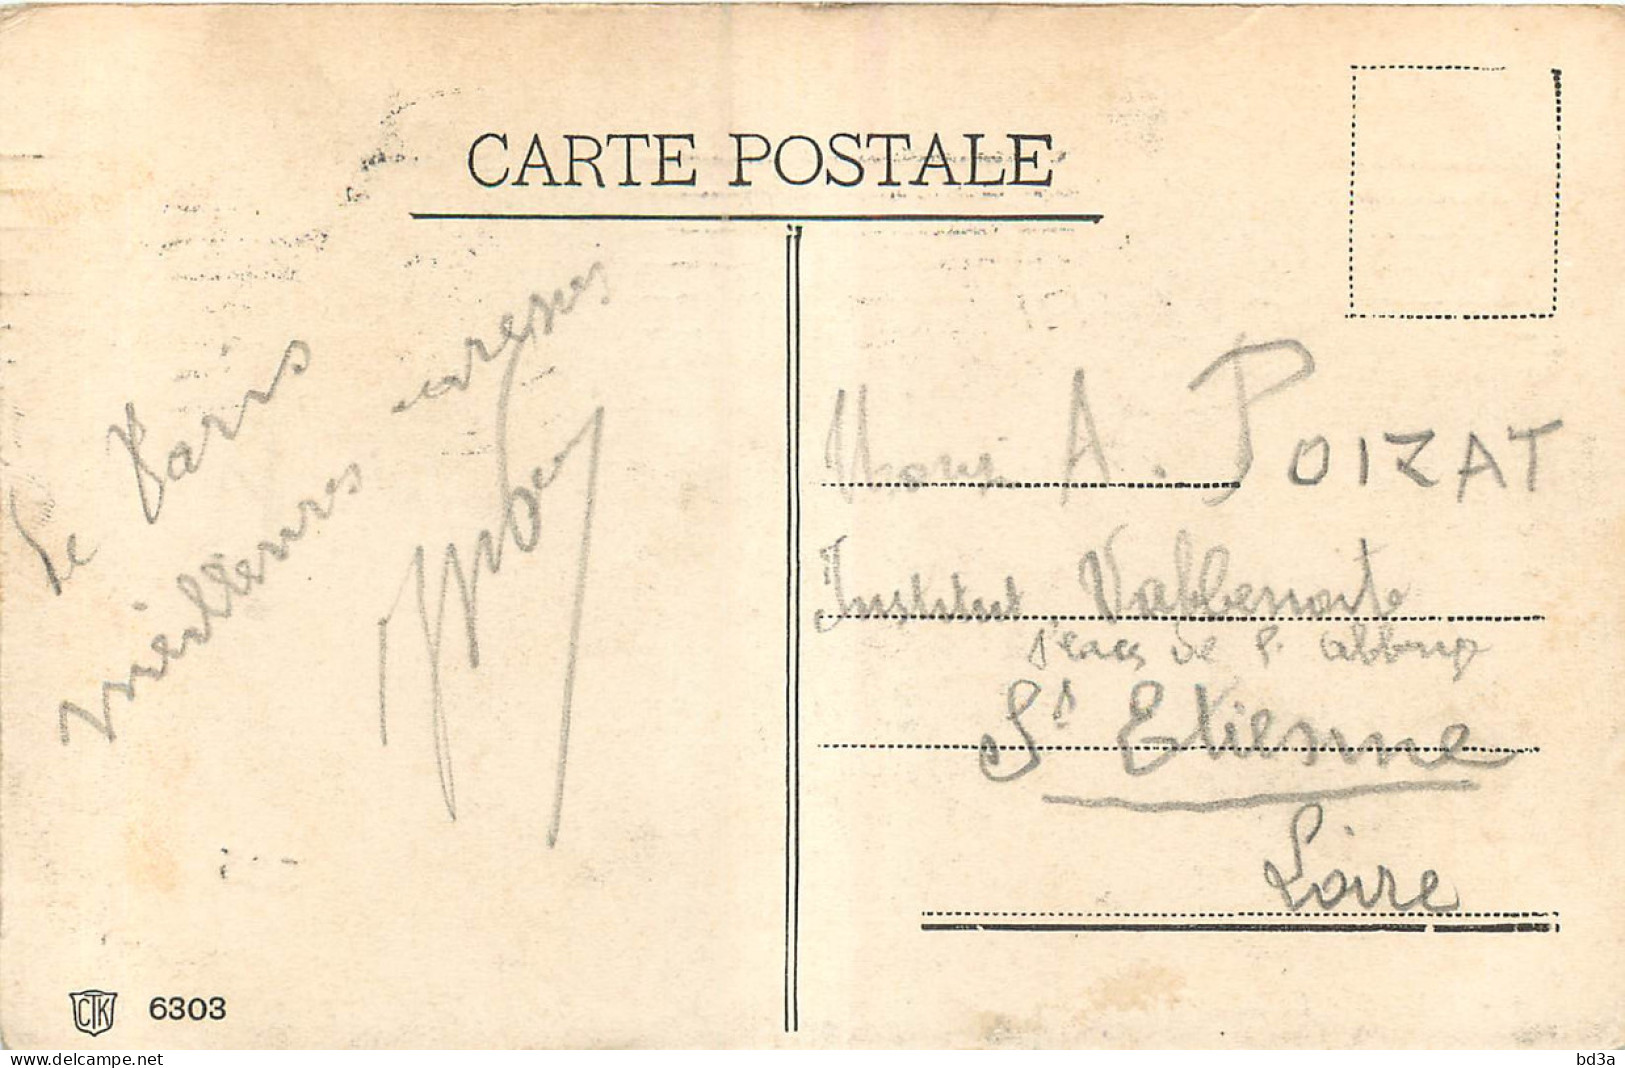 CARTE POSTALE
De Paris
meilleures caresses
A. POIZAT
Institut Valbenoite
Place de l'abbaye
St Etienne
Loire
CTK 6303
www.delcampe.net
bd3a